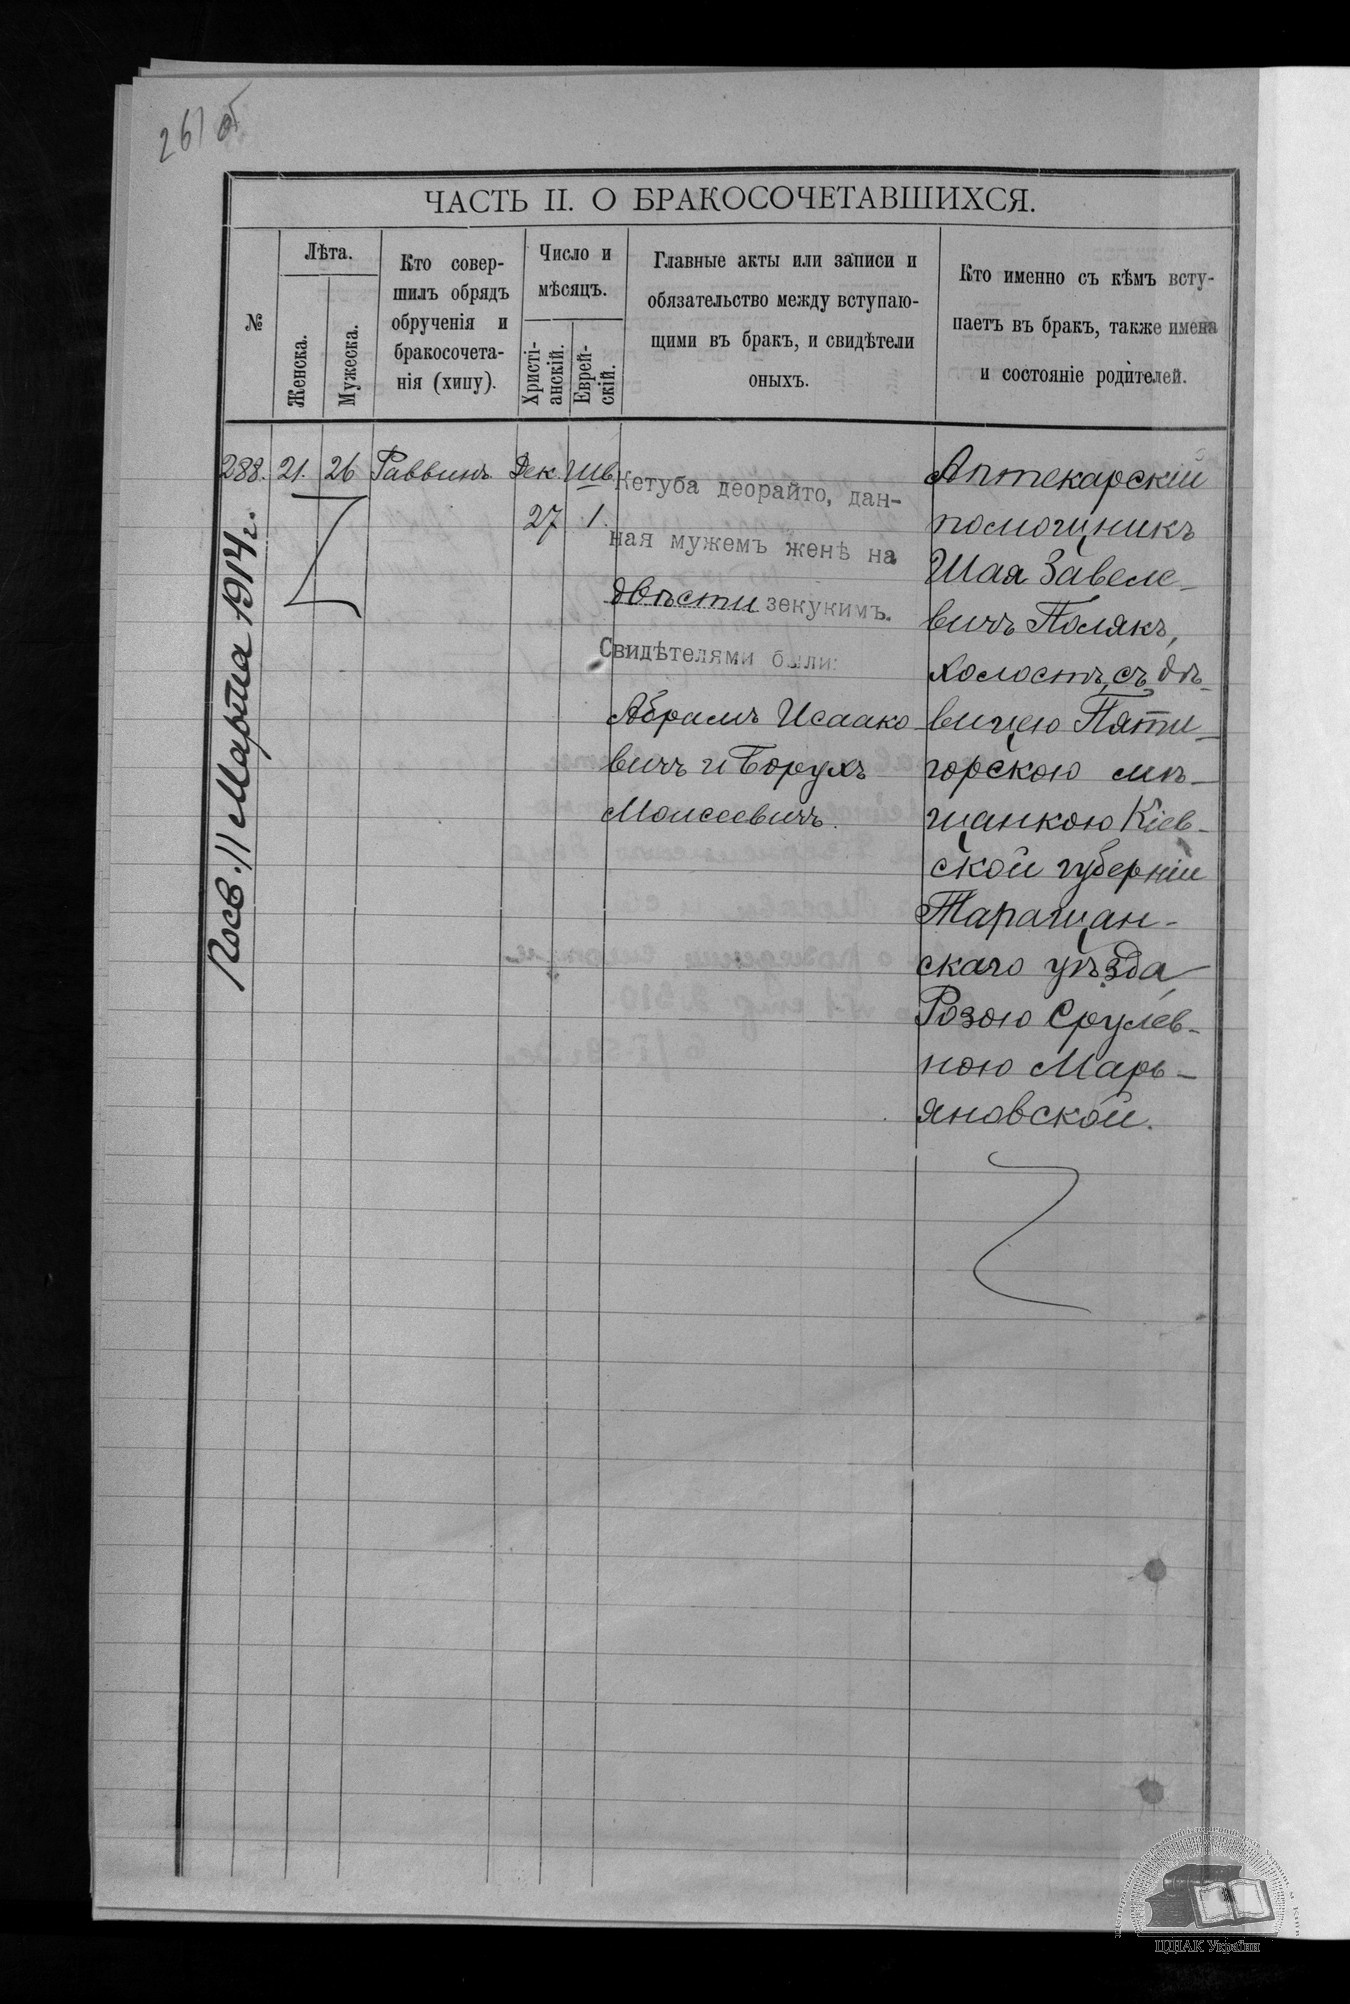 261 об
ЧАСТЬ II. О БРАКОСОЧЕТАВШИХСЯ.
№
Лѣта.
Женска.
Мужеска.
Кто совер-
шилъ обрядъ
обрученія и
бракосочета-
нія (хипу).
Число и
мѣсяцъ.
Христі-
анскій.
Еврей-
скій.
Главные акты или записи и
обязательство между вступаю-
щими въ бракъ, и свидѣтели
оныхъ.
Кто именно съ кѣмъ всту-
паетъ въ бракъ, также имена
и состояніе родителей.
288. 21. 26 Раввинъ Дек. Шв.
27 1.
Кетуба деорайто, дан-
ная мужемъ женѣ на
двѣсти зекукимъ.
Свидѣтелями были:
Абрамъ Исаако-
вичъ и Борухъ
Моисеевичъ.
Аптекарскій
помощникъ
Шая Завеле-
вичъ Полякъ,
холостъ, съ дѣ-
вицею Пяти-
горскою мѣ-
щанкою Кіев-
ской губерніи
Таращан-
скаго уѣзда,
Розою Срулев-
ною Марь-
яновской.
11 Марта 1914 г.
ЦДІАК України